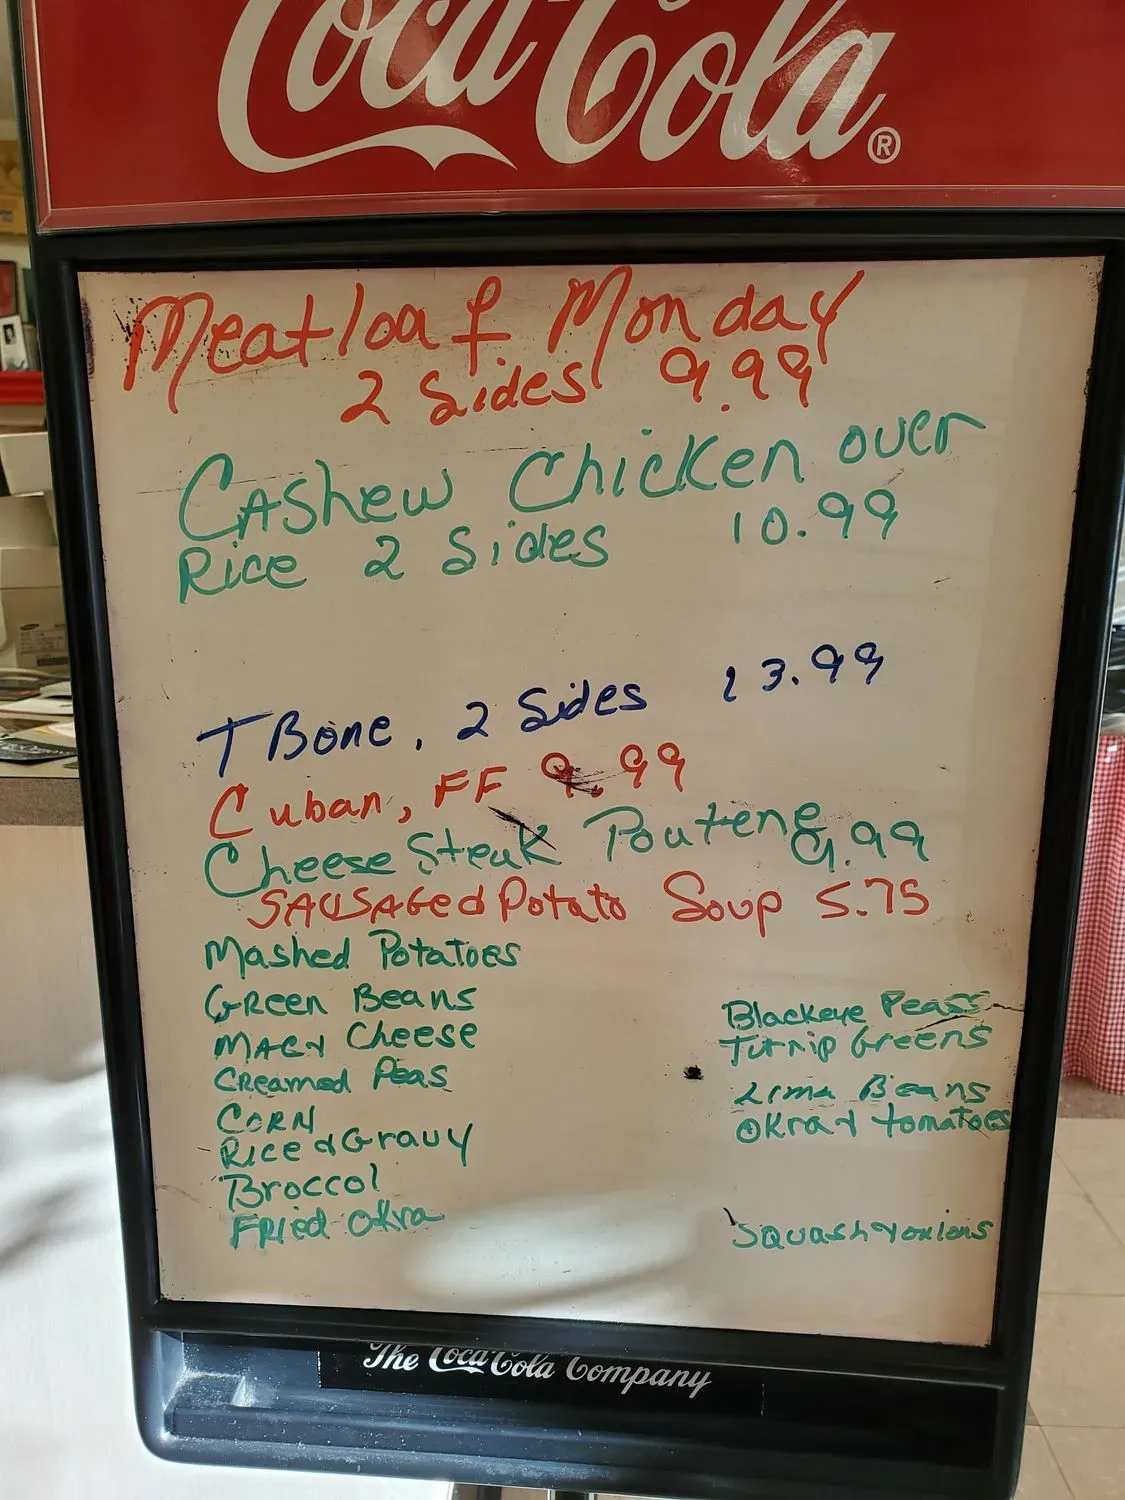 Coca-Cola®
Meatloaf Monday
2 Sides 9.99
Cashew Chicken over
Rice 2 Sides 10.99
T Bone, 2 Sides 13.99
Cuban, FF 9.99
Cheese Steak Poutene 9.99
SAUSAGed Potato Soup 5.75
Mashed Potatoes
Green Beans
Blackeye Peas
MAC+ Cheese
Turnip Greens
Creamed Peas
Lima Beans
CORN
Okra + tomatoes
Rice + Gravy
Broccol
Fried Okra
Squash + onions
The Coca-Cola Company